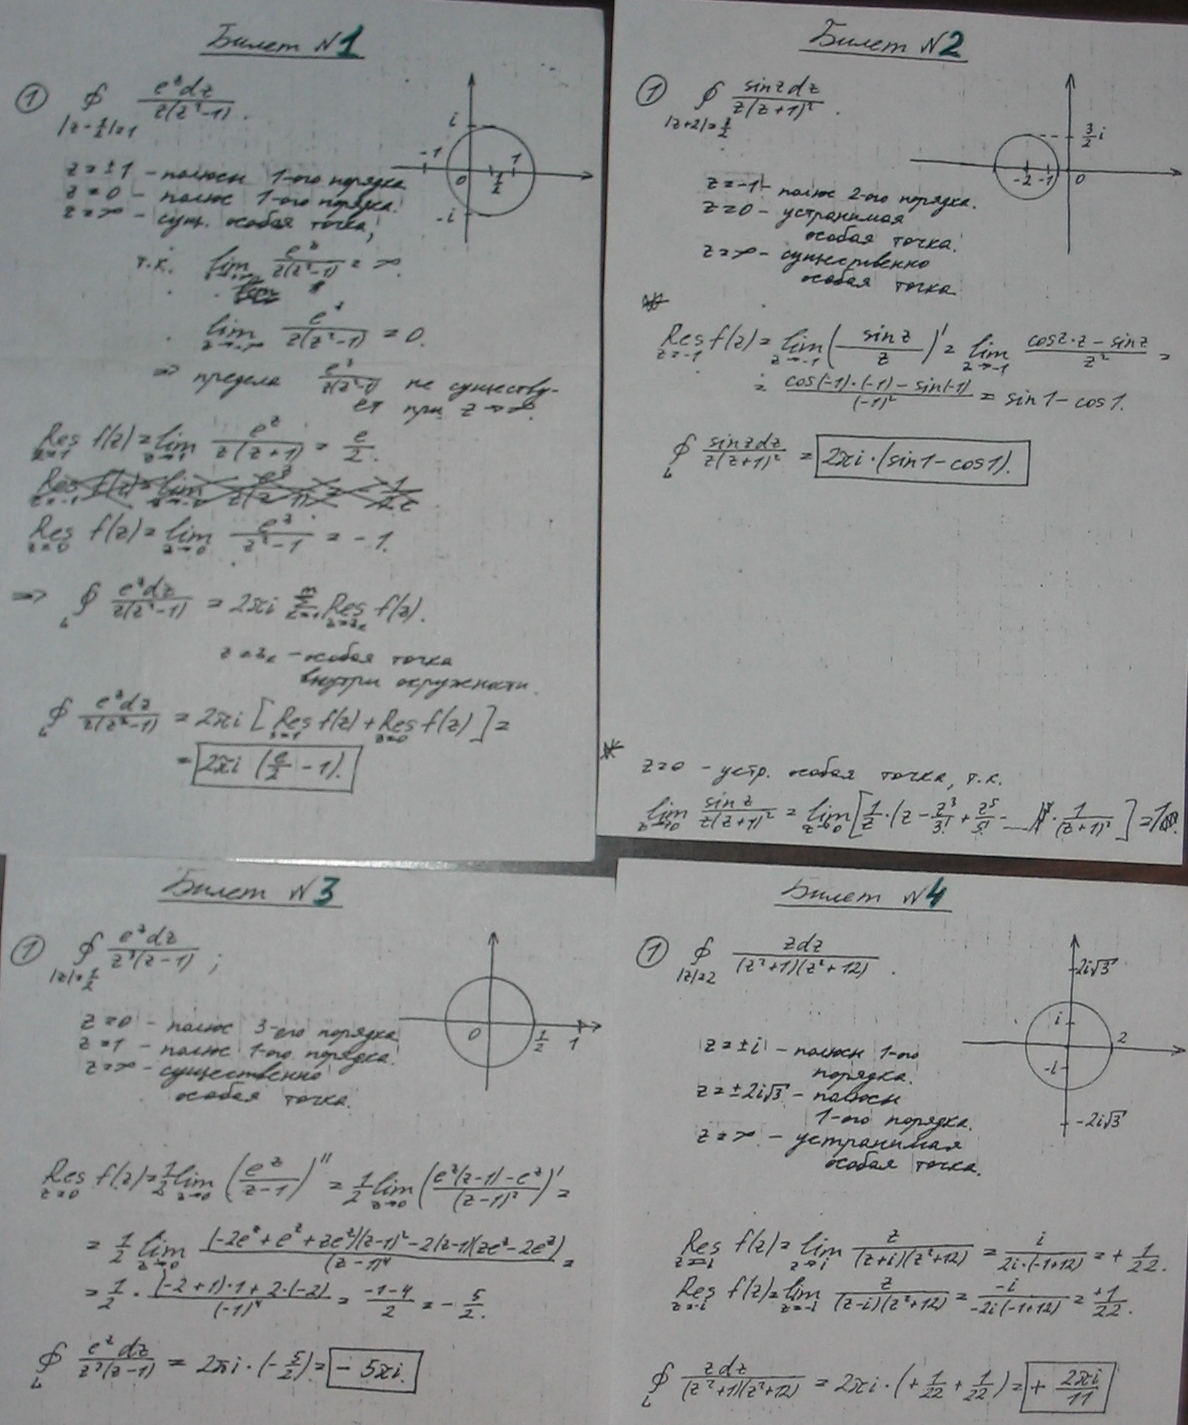 Билет N1
① ∮ e^z dz / z(z²-1) .
|z-1/2|=1
i
-1
0
1/2
1
-i
z=±1 - полюсы 1-ого порядка
z=0 - полюс 1-ого порядка.
z=∞ - сущ. особая точка,
т.к. lim e^z / z(z²-1) = ∞.
lim e^z / z(z²-1) = 0.
z→-∞
⇒ предела e^z / z(z²-1) не существу-
ет при z→∞.
Res f(z) = lim e^z / z(z+1) = e/2.
z=1 z→1
Res f(z) = lim e^z / z²-1 = -1.
z=0 z→0
⇒ ∮ e^z dz / z(z²-1) = 2πi Σ Res f(z).
L z=z_k
z=z_k - особая точка
внутри окружности.
∮ e^z dz / z(z²-1) = 2πi [Res f(z) + Res f(z)] =
L z=1 z=0
= 2πi (e/2 - 1).
Билет N2
① ∮ sin z dz / z(z+1)² .
|z+2|=3/2
3/2 i
-2 -1 0
z=-1 - полюс 2-ого порядка.
z=0 - устранимая
особая точка.
z=∞ - существенно
особая точка.
*
Res f(z) = lim (sin z / z)' = lim cos z·z - sin z / z² =
z=-1 z→-1 z→-1
= cos(-1)·(-1) - sin(-1) / (-1)² = sin1 - cos1.
∮ sin z dz / z(z+1)² = 2πi·(sin1-cos1).
L
* z=0 - устр. особая точка, т.к.
lim sin z / z(z+1)² = lim [1/z·(z - z³/3! + z⁵/5! - ...)·1/(z+1)²] = 1.
z→0 z→0
Билет N3
① ∮ e^z dz / z³(z-1) ;
|z|=1/2
0 1/2 1
z=0 - полюс 3-его порядка
z=1 - полюс 1-ого порядка.
z=∞ - существенно
особая точка.
Res f(z) = 1/2 lim (e^z / z-1)'' = 1/2 lim (e^z(z-1) - e^z / (z-1)²)' =
z=0 z→0 z→0
= 1/2 lim (-2e^z + e^z + ze^z)(z-1)² - 2(z-1)(ze^z - 2e^z) / (z-1)⁴ =
z→0
= 1/2 · (-2+1)·1 + 2·(-2) / (-1)⁴ = -1-4 / 2 = -5/2.
∮ e^z dz / z³(z-1) = 2πi·(-5/2) = -5πi.
L
Билет N4
① ∮ z dz / (z²+1)(z²+12) .
|z|=2
2i√3
i
2
-i
-2i√3
z=±i - полюсы 1-ого
порядка.
z=±2i√3 - полюсы
1-ого порядка.
z=∞ - устранимая
особая точка.
Res f(z) = lim z / (z+i)(z²+12) = i / 2i·(-1+12) = +1/22.
z=i z→i
Res f(z) = lim z / (z-i)(z²+12) = -i / -2i(-1+12) = +1/22.
z=-i z→-i
∮ z dz / (z²+1)(z²+12) = 2πi·(+1/22 + 1/22) = + 2πi/11
L